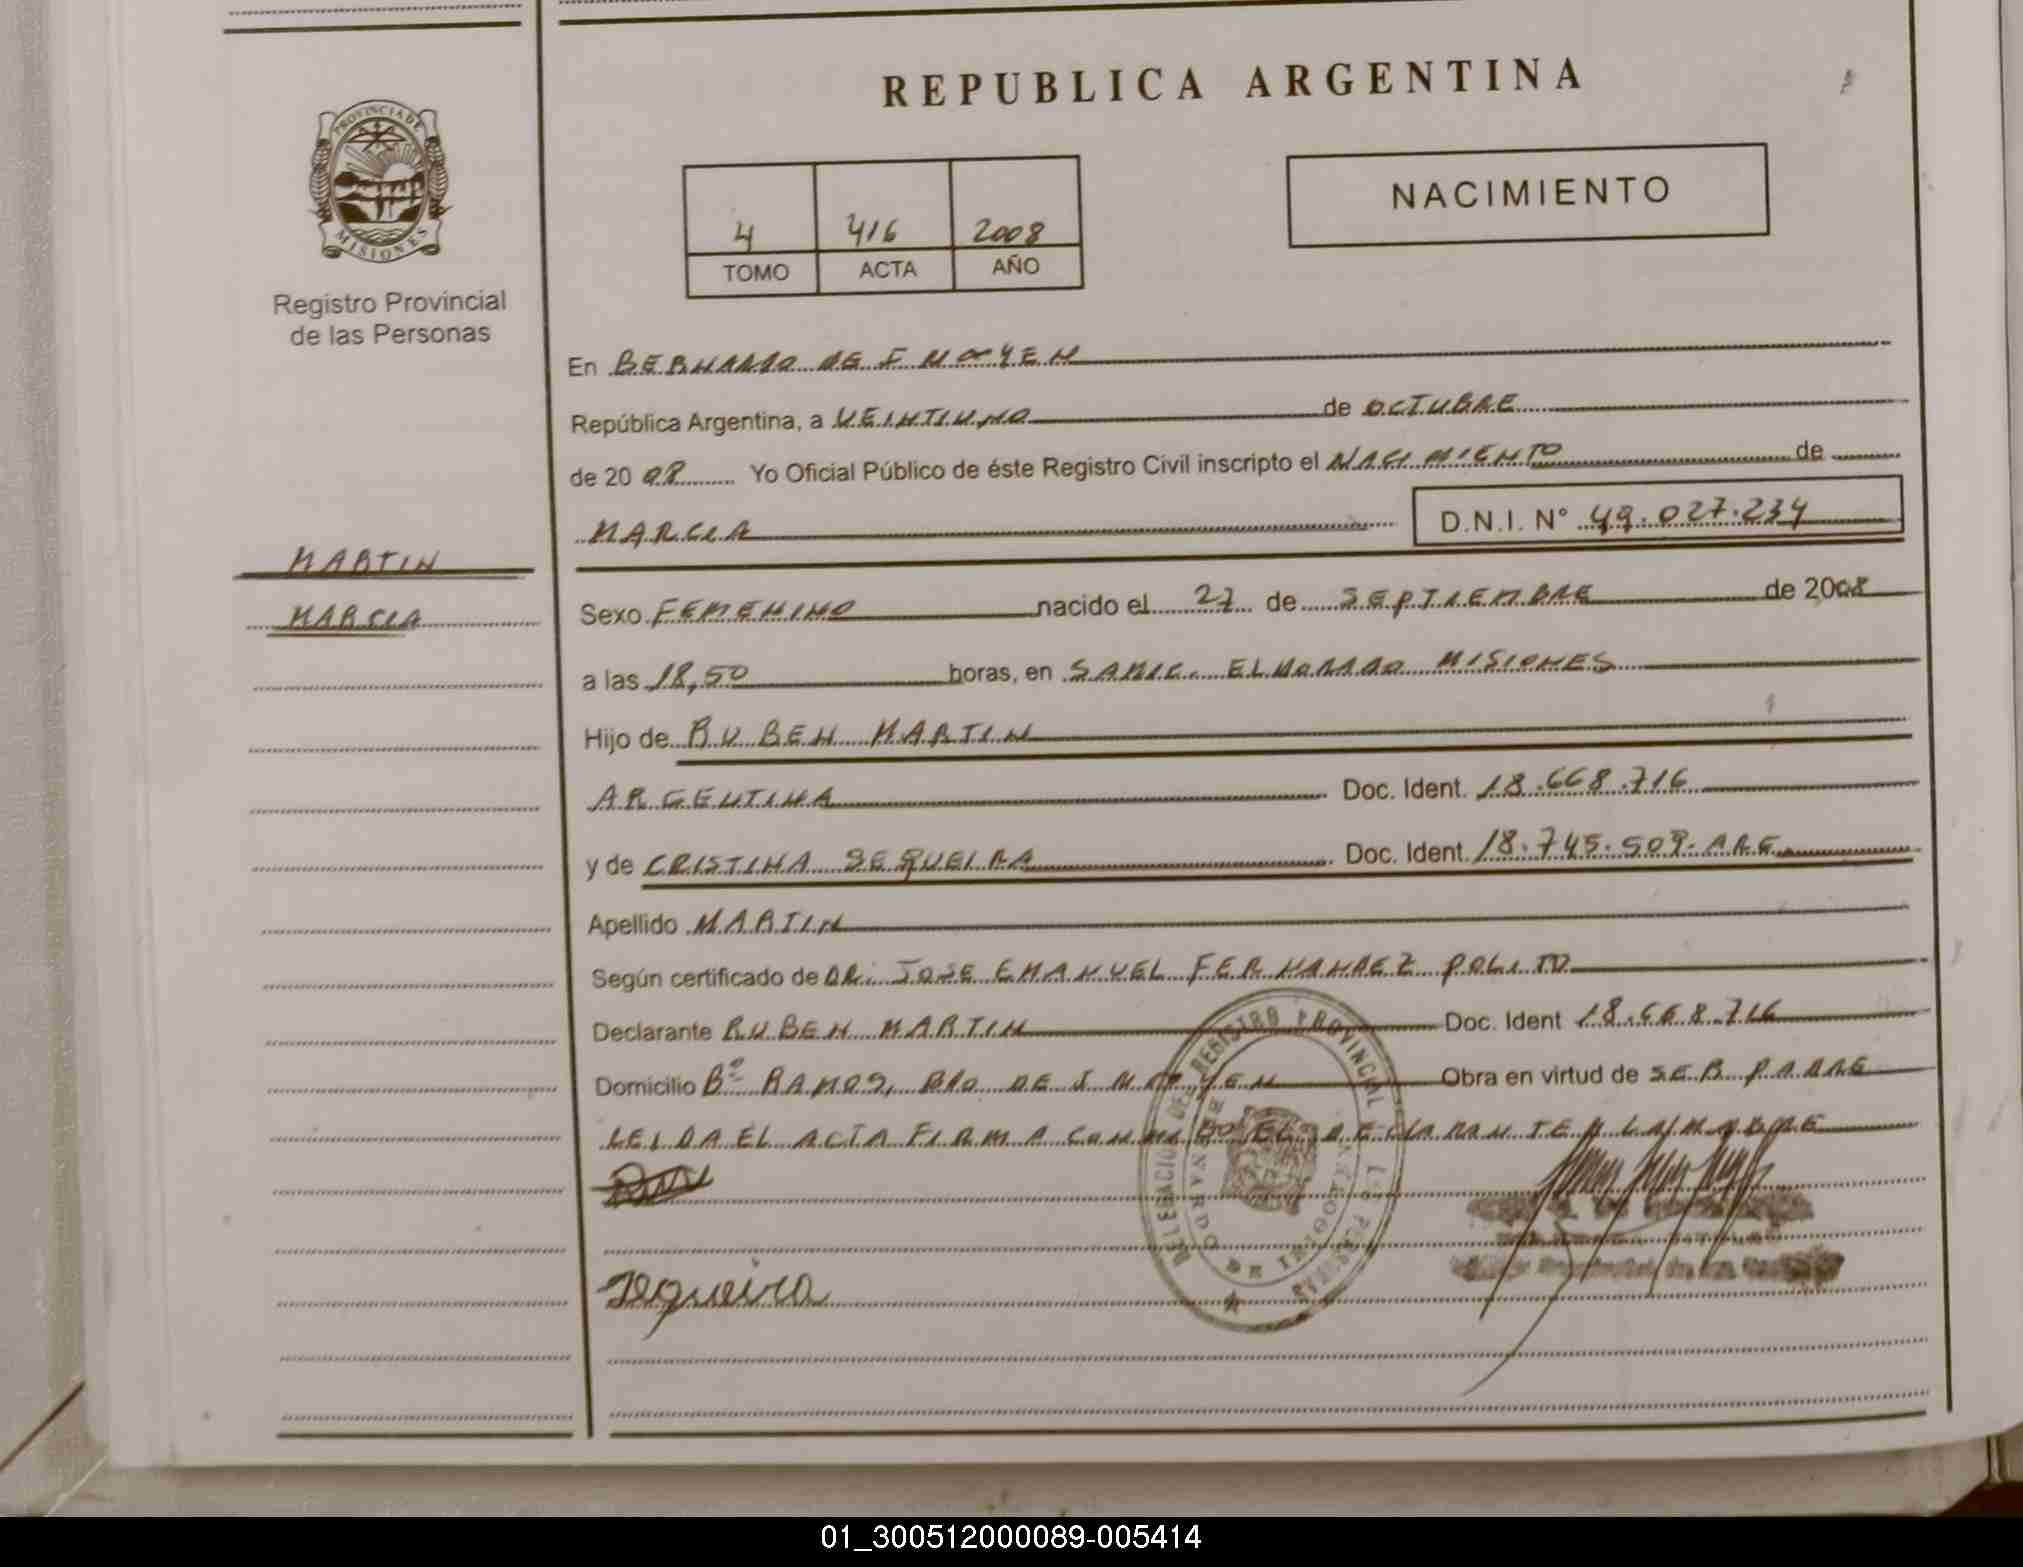 REPUBLICA ARGENTINA
PROVINCIA DE
MISIONES
Registro Provincial
de las Personas
NACIMIENTO
4 416 2008
TOMO ACTA AÑO
En BERNARDO DE IRIGOYEN
República Argentina, a VEINTIUNO de OCTUBRE
de 20 08 Yo Oficial Público de éste Registro Civil inscripto el NACIMIENTO de
MARCIA D.N.I. N° 49.027.234
MARTIN
MARCIA
Sexo FEMENINO nacido el 27 de SEPTIEMBRE de 2008
a las 18,50 horas, en SAMIC. ELDORADO MISIONES
Hijo de RUBEN MARTIN
ARGENTINA Doc. Ident. 18.668.716
y de CRISTINA SEQUEIRA Doc. Ident. 18.745.509. ARG
Apellido MARTIN
Según certificado de DR. JOSE EMANUEL FERNANDEZ POLITO
Declarante RUBEN MARTIN Doc. Ident 18.668.716
Domicilio B° RAMOS, BDO DE IRIGOYEN Obra en virtud de SER PADRE
LEIDA EL ACTA FIRMA CONMIGO EL DECLARANTE Y LA MADRE
DELEGACION DEL REGISTRO PROVINCIAL DE LAS PERSONAS
BERNARDO DE IRIGOYEN
Sequeira
01_300512000089-005414